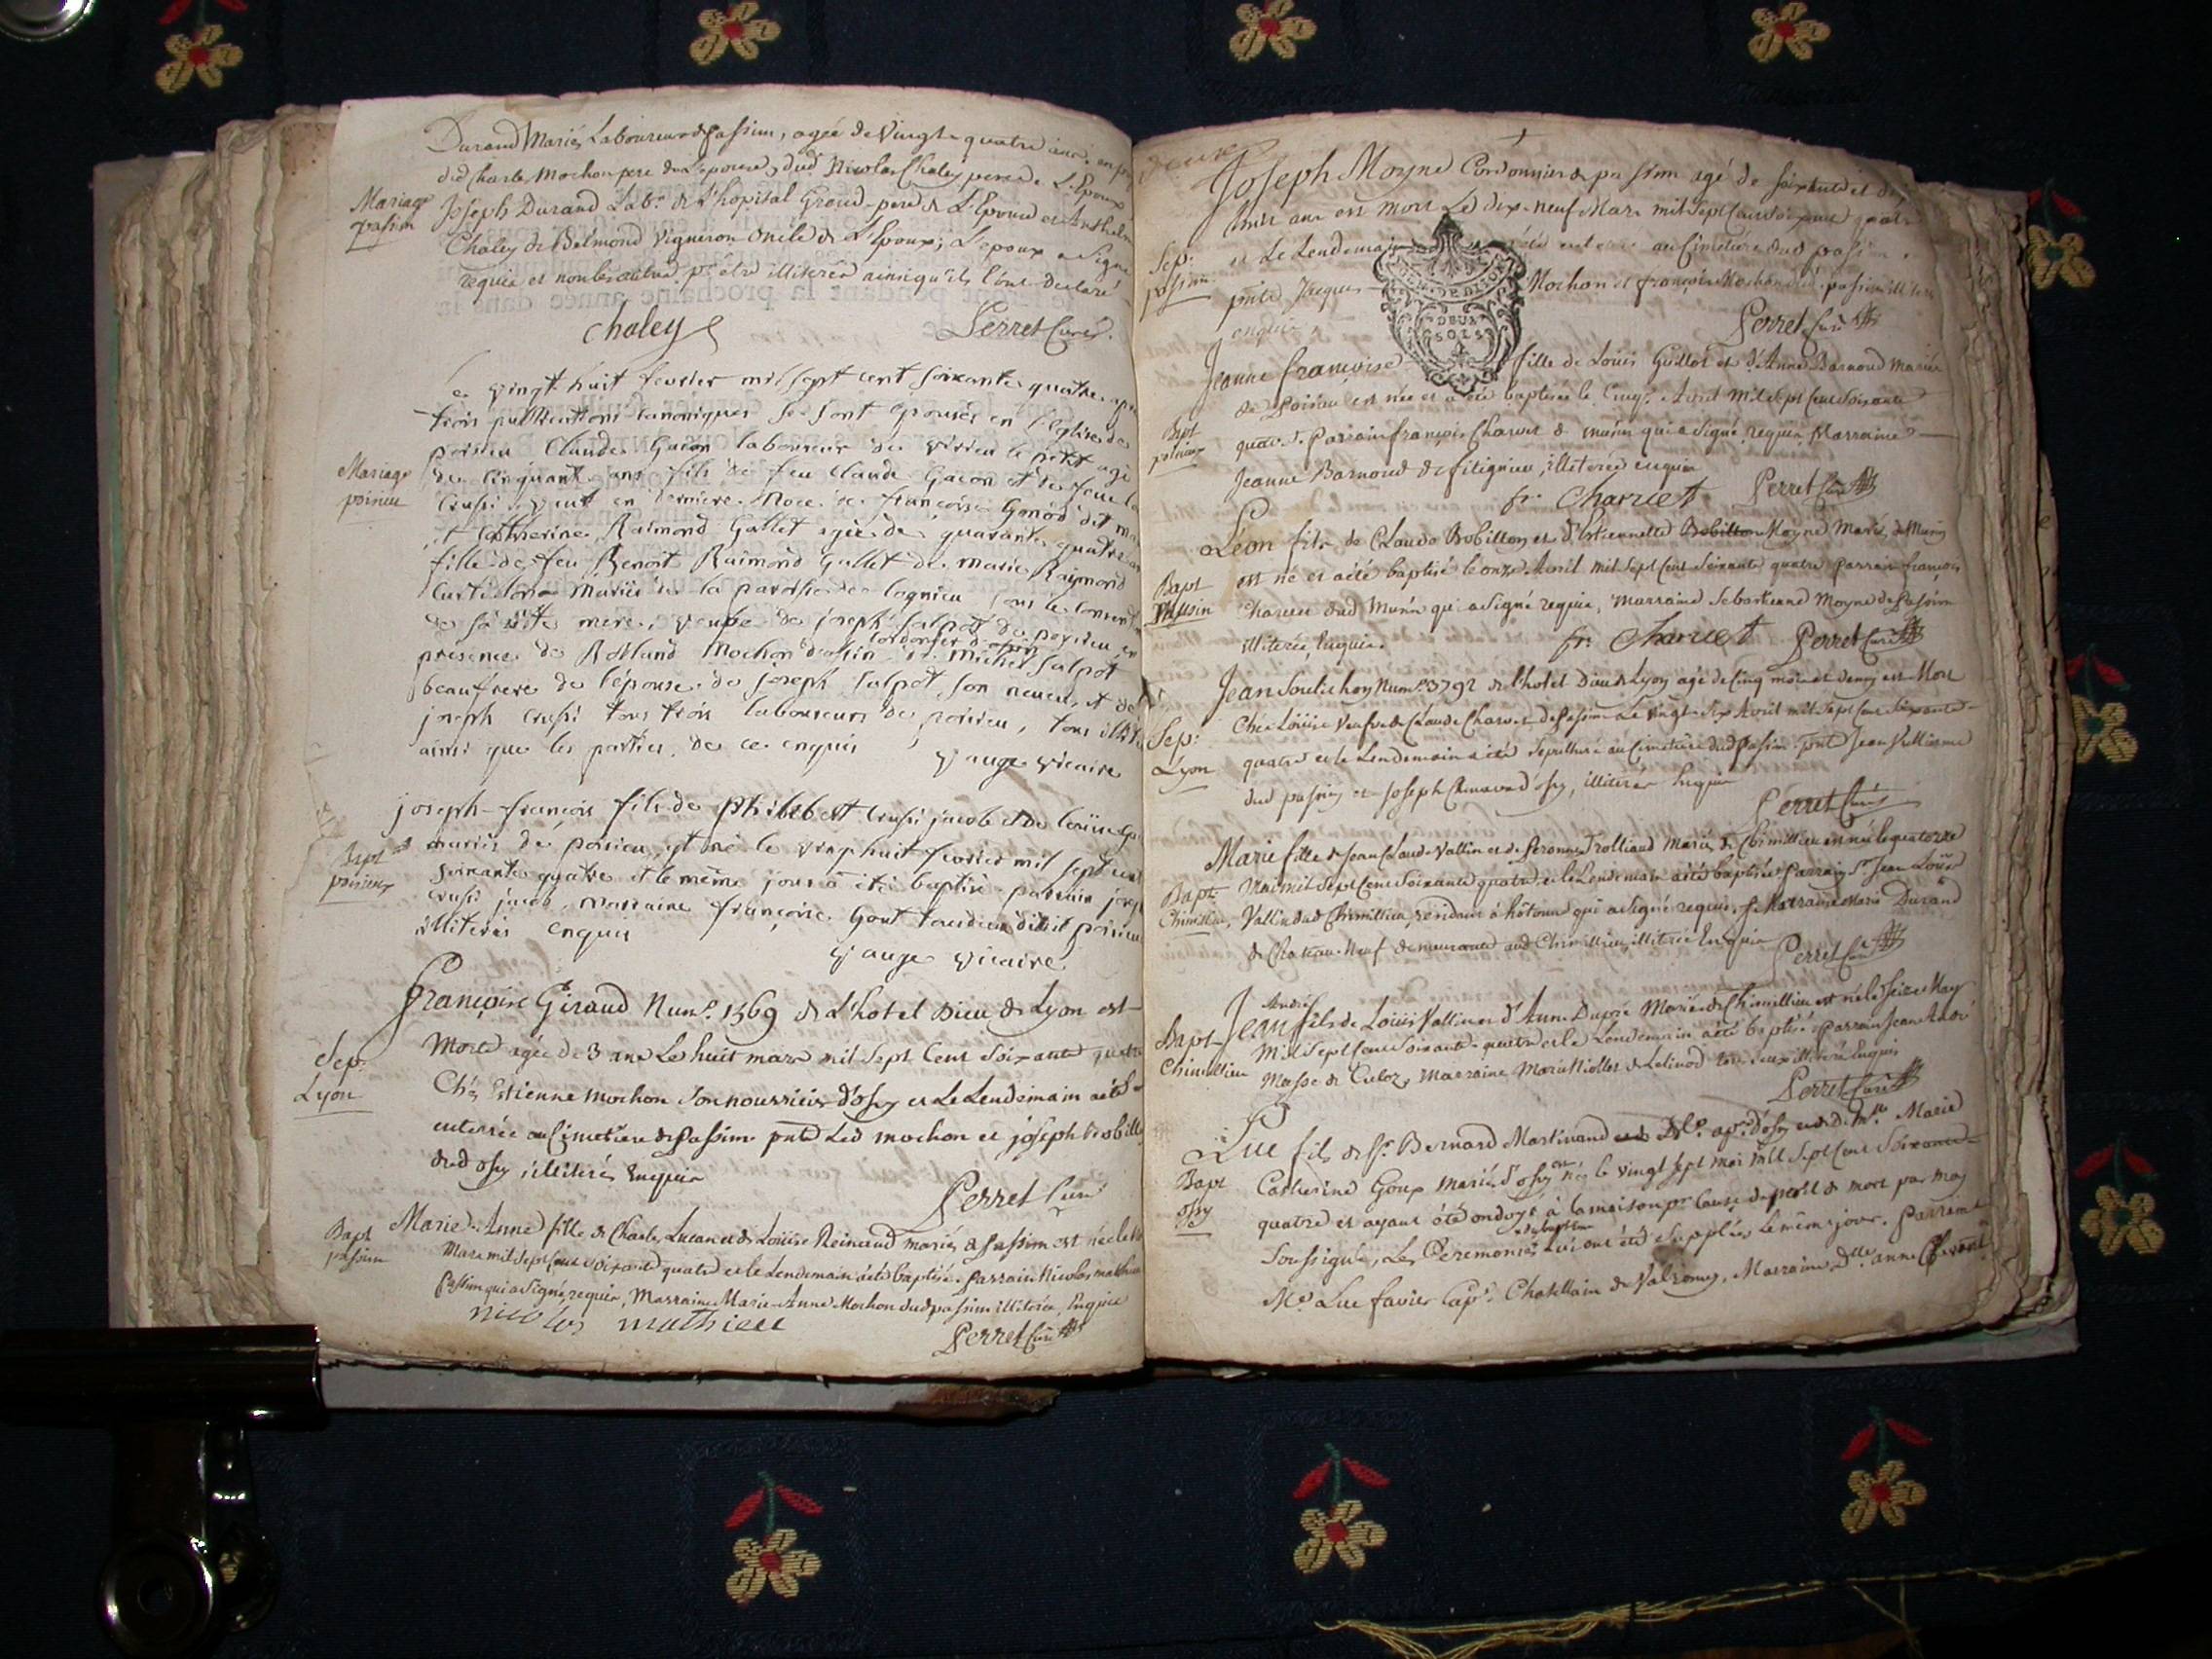 Durand Mariés Laboureur de passim, agée de Vingt-quatre ans, en
dud Charles Mochon pere de L'epouse, dud Nicolas Chaley pere de L'Epoux
Mariage
passim
Joseph Durand Lab.r de L'hopital Grand-pere de L'Epouse et Anthelme
Chaley de Belmond Vigneron oncle de L'Epoux; L'epoux a Signé
requis et non les autres p.r etre illiterés ainsi qu'ils l'ont declaré
chaley
Perret Curé.
Le vingt huit fevrier mil sept cent soixante quatre, après
trois publications canoniques se sont épousés en l'Eglise de
poisieu Claude Gacon laboureur de virieu le petit agé
Mariage
poisieu
de cinquante ans fils de feu Claude Gacon et de feue
Crussi veuf en derniere Noce de françoise Gonod dit
et Catherine Raimond Gallet agée de quarante quatre ans
fille de feu Benoit Raimond Gallet de Marie Raymond
mariés de la paroisse de lognieu sous le consent
de sa dite mere, veuve de joseph Salpot de poisieu en
présence de Rolland Mochon d'assin cordonier et Michel Salpot
beaufrere de l'épouse, de joseph Salpot son neveu, et de
joseph Crussi tous trois laboureurs de poisieu, tous illit
ainsi que les parties, de ce enquis
vauge vicaire
joseph-françois fils de Philibert Crussi jacob et de Louise
Bapt
poisieu
mariés de poisieu, est né le vingt huit fevrier mil sept cent
soixante quatre et le même jour a été baptisé parrain joseph
Crussi jacob, marraine françoise Gout dudit poisieu
illiterés enquis
vauge vicaire
Françoise Giraud Num.o 1569 de L'hotel Dieu de Lyon est
Sep:
Lyon
Morte agée de 3 ans Le huit mars mil Sept Cent Soixante quatre
Chés Estienne Mochon Son nourricier d'ossy et Le Lendemain a été
enterrée au Cimetiere de Passim pnts Led mochon et joseph Bobillon
dud ossy illiterés Enquis
Perret Curé
Bapt
passim
Marie-Anne fille de Charles Lucan et de Louise Reinaud mariés de Passim est née le
Mars mil sept Cent soixante quatre et le Lendemain a été baptisée. Parrain Nicolas mathieu
Passim qui a Signé, requis, Marraine Marie-Anne Mochon dud passim illiterée, Enquise
nicolas mathieu
Perret Curé
deuxe
Joseph Moyne Cordonnier de passim agé de soixante et dix
huit ans est mort Le dix-neuf Mars mil Sept Cent Soixante quatre
Sep:
passim
et Le Lendemain a été enterré au Cimetiere dud passim.
pnts Jacques Mochon et françois Mochon dud passim illiterés
enquis
Perret Curé
DEUX
SOLS
Jeanne françoise fille de Louis Guillot et d'Anne Barnoud Mariés
de Poisieu est née et a été baptisée le Cinq.e Avril Mil Sept Cent Soixante
Bapt
poisieu
quatre. Parrain françois Charvet de munin qui a Signé, requis, Marraine
Jeanne Barnoud de fitignieu, illiterée enquise
fr. charvet
Perret Curé
Léon fils de Claude Bobillon et d'Estiennette Bobillon Moyne Mariés de Munin
Bapt
Passin
est né et a été baptisé le onze Avril mil sept Cent Soixante quatre Parrain François
Charvet dud Munin qui a Signé requis, Marraine Sebastienne Moyne de Passim
illiterée, Enquise.
fr. charvet
Perret Curé
Jean Soulichon Num.o 3792 de l'hotel Dieu de Lyon agé de Cinq mois et demy est Mort
Sep:
Lyon
Chés Louise Veuve de Claude Charvet de Passim Le vingt-six Avril mil Sept Cent Soixante-
quatre et le Lendemain a été Sepulturé au Cimetiere dud Passim. pnts Jean Vulliame
dud passim et Joseph Chenavas d'ossy, illiterés Enquis
Perret Curé
Marie fille de Jean Claude Vallin et de Peronne Trolliand Mariés de Chimillieu est née le quatorze
Bapt
Chimillieu
Mai mil Sept Cent Soixante quatre et le Lendemain a été baptisée Parrain Sr. Jean Louis
Vallin dud Chimillieu, residant à hotonne qui a Signé requis. Marraine Marie Durand
de Chateau-neuf demeurante aud Chimillieu, illiterée Enquise
Perret Curé
Bapt
Chimillieu
André
Jean fils de Louis Vallin et d'Anne Dupré Mariés de Chimillieu est né le Seize May
Mil Sept Cent Soixante-quatre et le Lendemain a été baptisé. Parrain Jean André
Masse de Culoz, Marraine Marie Niollet de Lelinod tous deux illiterés Enquis
Perret Curé
Luc fils de Sr. Bernard Martinand d'ossy et de D.lle Marie
Bapt
ossy
Catherine Goux mariés d'ossy est né le vingt sept mai mil Sept Cent Soixante-
quatre et ayant été ondoyé à la maison pr. Cause de peril de mort par moy
Soussigné, Les Ceremonies du baptême lui ont été Suppléés Le même jour. Parrain
Me. Luc favier Cap.e Chatellain de Valromey, Marraine D.lle anne